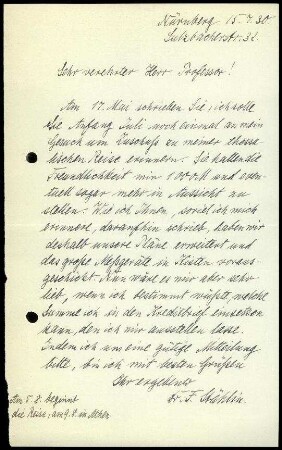 Nürnberg 15.7.30
Sulzbacherstr. 32.
Sehr verehrter Herr Professor!
Am 17. Mai schrieben Sie, ich solle
Sie Anfang Juli noch einmal an mein
Gesuch um Zuschuß zu meiner thessa-
lischen Reise erinnern. Sie hatten die
Freundlichkeit mir 1000 M und even-
tuell sogar mehr in Aussicht zu
stellen. Wie ich Ihnen, soviel ich mich
erinnere, daraufhin schrieb, haben wir
deshalb unsere Pläne erweitert und
das große Meßgeräte in Kisten voraus-
geschickt. Nun wäre es mir aber sehr
lieb, wenn ich bestimmt wüßte, welche
Summe ich in den Kreditbrief einsetzen
kann, den ich mir ausstellen lasse.
Indem ich um eine gütige Mitteilung
bitte, bin ich mit besten Grüßen
Ihr ergebener
Dr. F. Stählin.
Am 5. 8. beginnt
die Reise; am 9. 8. in Athen.